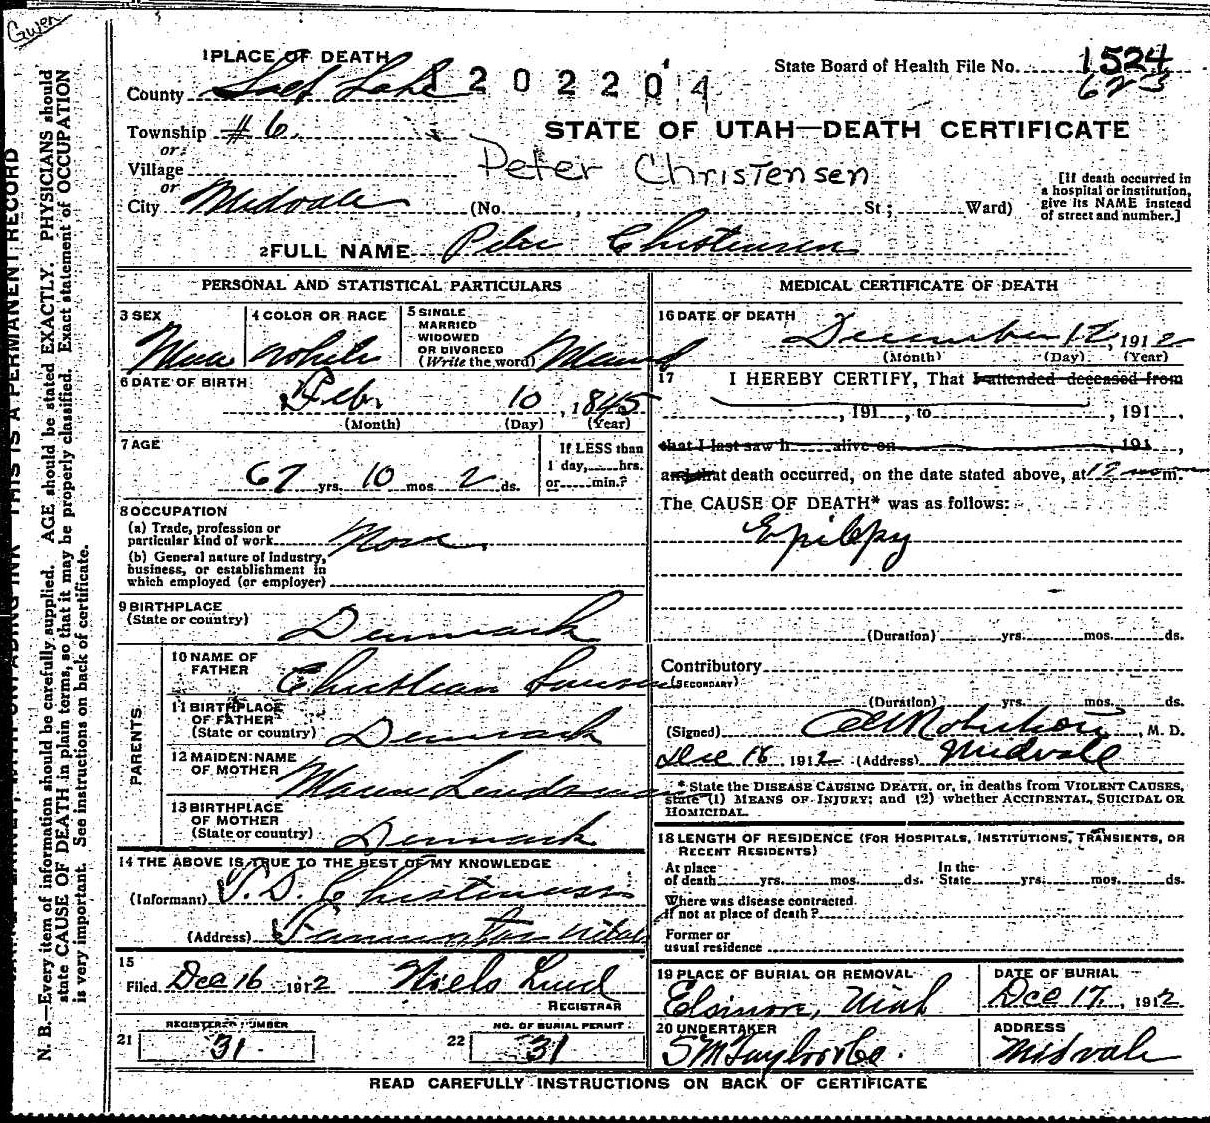 Gwen
1 PLACE OF DEATH
County Salt Lake
1202204
State Board of Health File No. 1524
623
Township #6
or
STATE OF UTAH—DEATH CERTIFICATE
Village
or
Peter Christensen
City Midvale (No. , St; Ward)
[If death occurred in a hospital or institution, give its NAME instead of street and number.]
2 FULL NAME Peter Christensen
PERSONAL AND STATISTICAL PARTICULARS
3 SEX
Male
4 COLOR OR RACE
White
5 SINGLE
MARRIED
WIDOWED
OR DIVORCED
(Write the word) Married
6 DATE OF BIRTH
Feb. 10, 1845
(Month) (Day) (Year)
7 AGE
67 yrs. 10 mos. 2 ds.
If LESS than
1 day, hrs.
or min.?
8 OCCUPATION
(a) Trade, profession or
particular kind of work None
(b) General nature of industry,
business, or establishment in
which employed (or employer)
9 BIRTHPLACE
(State or country) Denmark
PARENTS
10 NAME OF
FATHER Christian
11 BIRTHPLACE
OF FATHER
(State or country) Denmark
12 MAIDEN NAME
OF MOTHER Maren
13 BIRTHPLACE
OF MOTHER
(State or country) Denmark
14 THE ABOVE IS TRUE TO THE BEST OF MY KNOWLEDGE
(Informant) P. D. Christensen
(Address) Farmington Utah
15
Filed Dec 16 1912 Niels Lind
REGISTRAR
21 REGISTERED NUMBER
31
22 NO. OF BURIAL PERMIT
31
MEDICAL CERTIFICATE OF DEATH
16 DATE OF DEATH
December 12, 1912
(Month) (Day) (Year)
17 I HEREBY CERTIFY, That I attended deceased from
, 191 , to , 191 ,
that I last saw h alive on , 191 ,
and that death occurred, on the date stated above, at 12 noon m.
The CAUSE OF DEATH* was as follows:
Epilepsy
(Duration) yrs. mos. ds.
Contributory
(SECONDARY)
(Duration) yrs. mos. ds.
(Signed) , M. D.
Dec 16 1912 (Address) Midvale
* State the DISEASE CAUSING DEATH, or, in deaths from VIOLENT CAUSES,
state (1) MEANS OF INJURY; and (2) whether ACCIDENTAL, SUICIDAL OR
HOMICIDAL.
18 LENGTH OF RESIDENCE (FOR HOSPITALS, INSTITUTIONS, TRANSIENTS, OR
RECENT RESIDENTS)
At place
of death yrs. mos. ds. In the
State yrs. mos. ds.
Where was disease contracted
if not at place of death?
Former or
usual residence
19 PLACE OF BURIAL OR REMOVAL
Elsinore, Utah
DATE OF BURIAL
Dec 17, 1912
20 UNDERTAKER
S M Taylor & Co.
ADDRESS
Midvale
READ CAREFULLY INSTRUCTIONS ON BACK OF CERTIFICATE
THIS IS A PERMANENT RECORD
N. B.—Every item of information should be carefully supplied. AGE should be stated EXACTLY. PHYSICIANS should
state CAUSE OF DEATH in plain terms, so that it may be properly classified. Exact statement of OCCUPATION
is very important. See instructions on back of certificate.